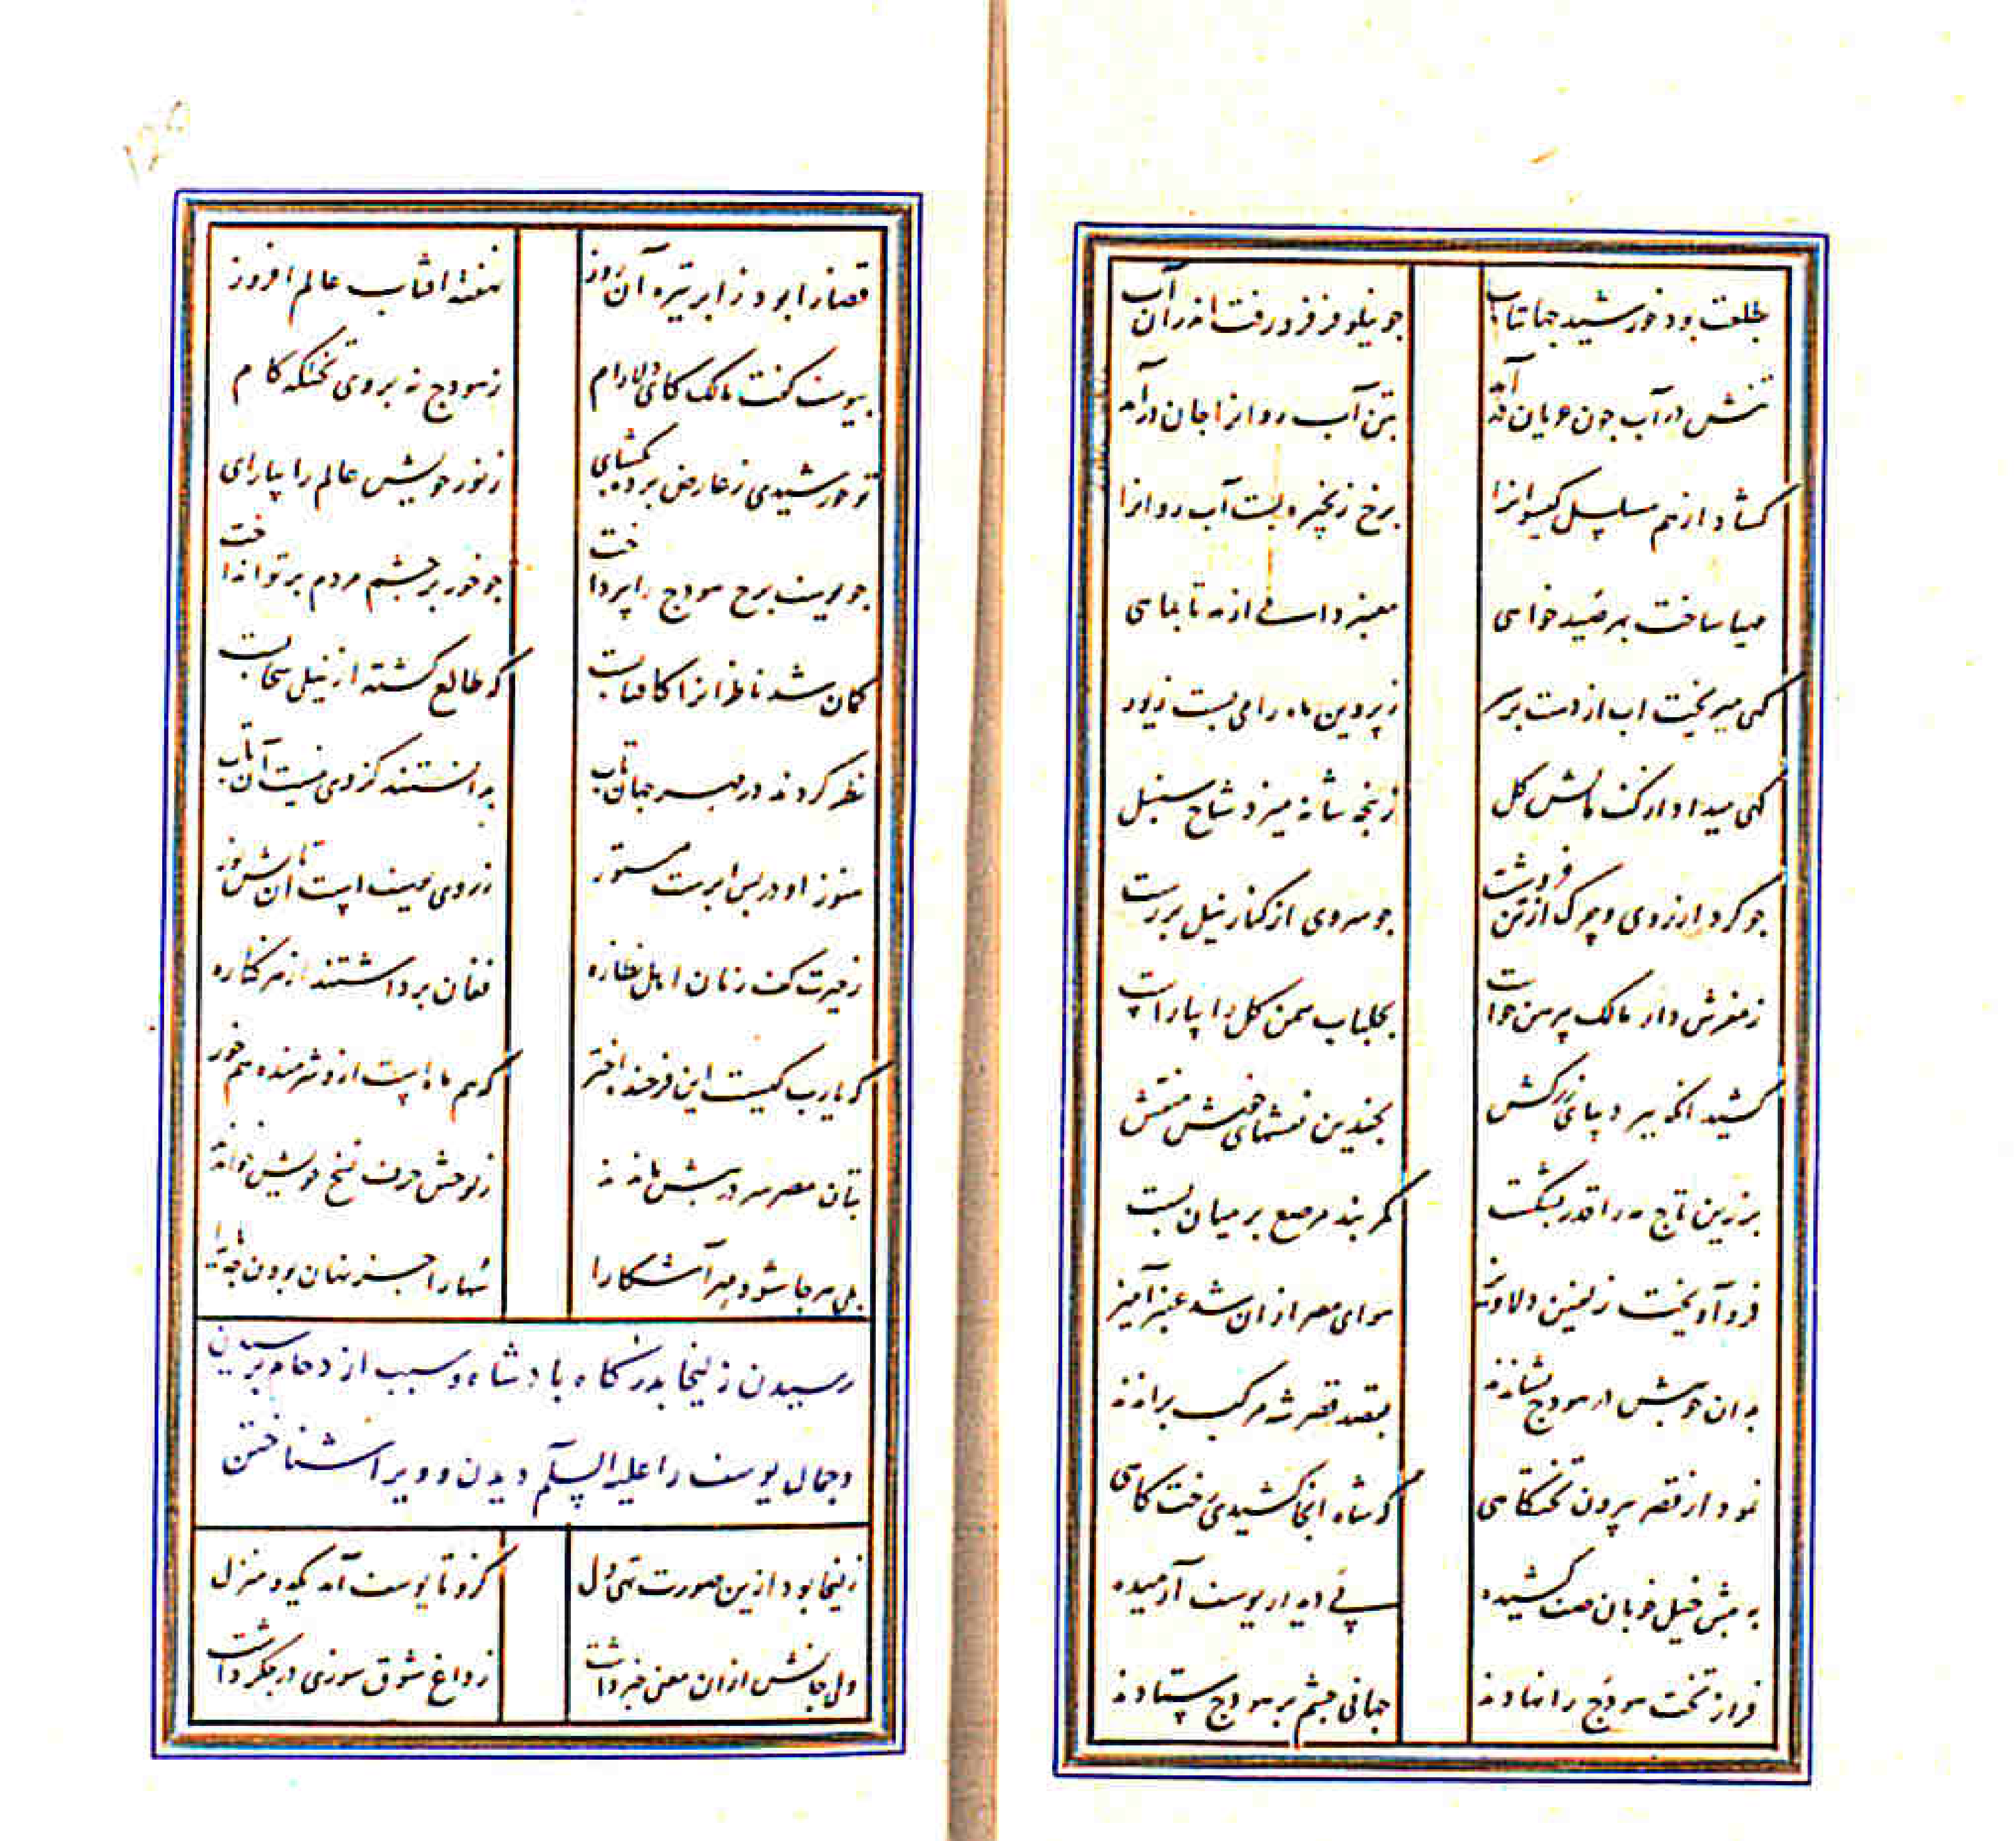 بطلعت بود خورشید جهانتاب چو نیلوفر فرو رفت اندر آن آب
تنش در آب چون عریان درآمد بتن آب روانرا جان درآمد
کشاد از هم مسلسل کیسوانرا برخ زنجیره بست آب روانرا
مهیا ساخت بهر صید خواهی معنبر دامی از مه تا بماهی
کهی میریخت اب از دست بر سر ز پروین ماه را می بست زیور
کهی میداد از کف مالش کل ز پنجه شانه میزد شاخ سنبل
چو کرد از روی و چرک از تن فروشست چو سروی از کنار نیل بررست
ز مفرش دار مالک پیرهن خواست بجلباب سمن کل را بیاراست
کشید انکه ببر دیبای زرکش بچندین نقشهای خوش منقش
بزرین تاج مه را قدر بشکست کمر بند مرصع بر میان بست
فرو آویخت زلفین دلاویز هوای مصر از ان شد عنبر آمیز
بدان خوبیش در هودج نشاندند بقصد قصر شه مرکب براندند
نمود از قصر بیرون تختکاهی که شاه انجا کشیدی رخت کاهی
به پیش خیل خوبان صف کشیده پی دیدار یوسف آرمیده
فراز تخت هودج را نهادند جهانی چشم بر هودج ستادند
قضا را بود ز ابر تیره آن روز نهفته افتاب عالم افروز
بیوسف کفت مالک کای دلارام ز هودج نه بروی تختکه کام
تو خورشیدی ز عارض پرده بکشای ز نور خویش عالم را بیارای
چو یوسف برج هودج را بپرداخت چو خور بر چشم مردم پرتو انداخت
کمان شد ناظرانرا کافتابست که طالع کشته از نیلی سحابست
نظر کردند در مهر جهان تاب بدانستند کز وی نیست آن تاب
هنوز او در پس ابرست مستور ز روی یوسف است آن تابش نور
ز حیرت کف زنان اهل نظاره فغان برداشتند از هر کناره
که یارب کیست این فرخنده اختر که هم ماه است ازو شرمنده هم خور
بتان مصر سر در پیش ماندند ز لوحش حرف نسخ خویش خواندند
بلی هر جا شود مهر آشکارا سها را جز نهان بودن چه یارا
رسیدن زلیخا بدرکاه بادشاه و سبب ازدحام پرسیدن
و جمال یوسف را علیه السلم دیدن و ویرا شناختن
زلیخا بود ازین صورت تهی دل کزو تا یوسف آمد یکدو منزل
ولی جانش از ان معنی خبر داشت ز داغ شوق سوزی در جکر داشت